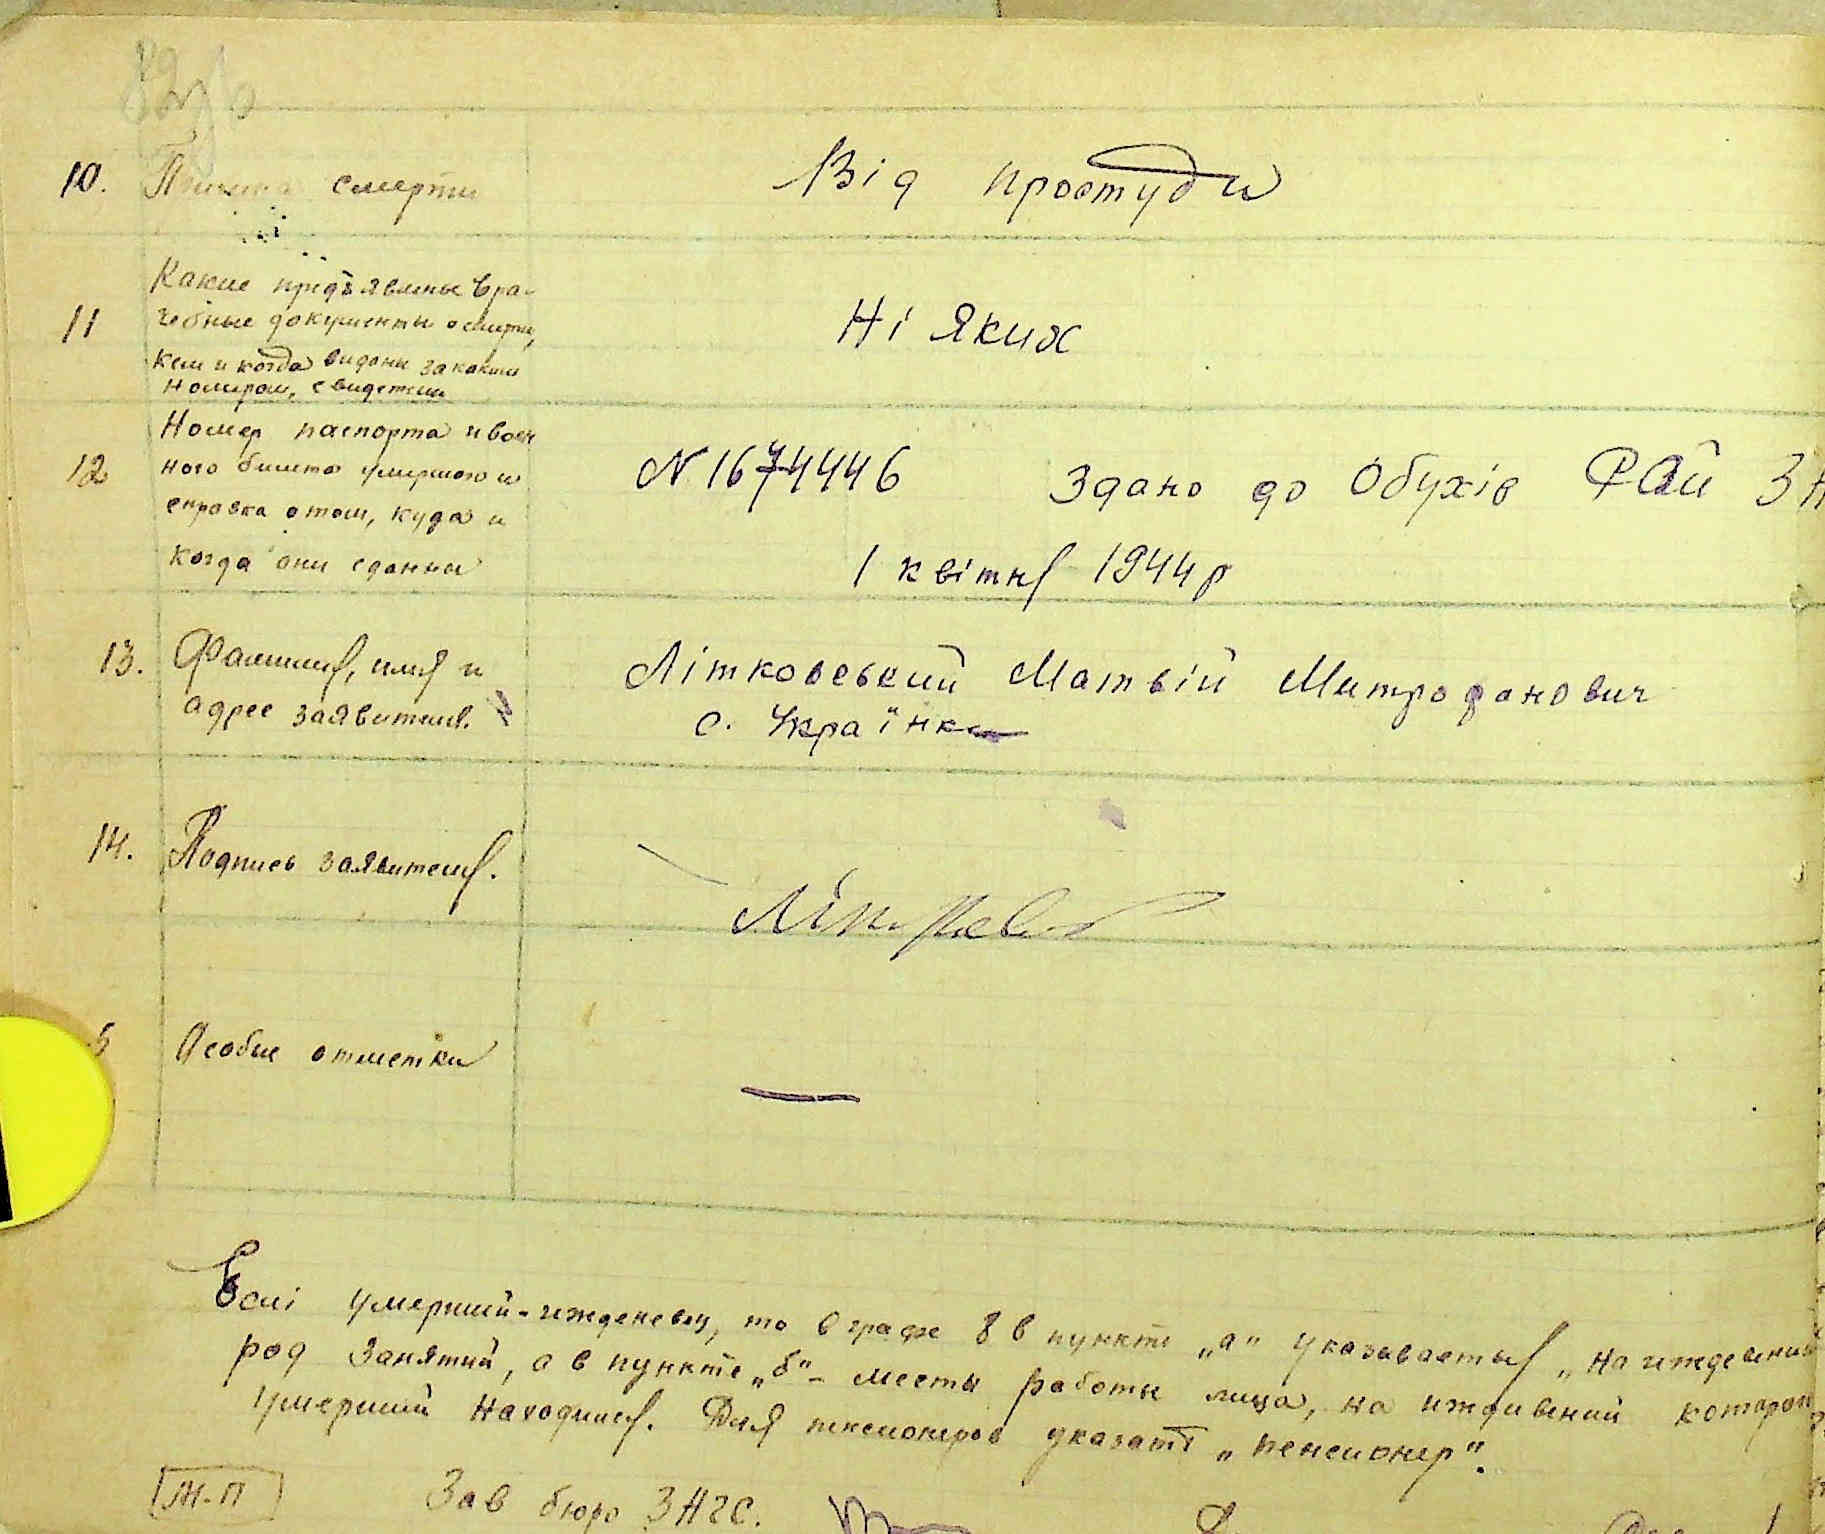 10. Причина смерти
Від простуди
11 Какие предъявлены вра-
чебные документы о смерти,
кем и когда видани за каким
номером, свидетели
Ні яких
12 Номер паспорта и воен
ного билета умершого и
справка отом, куда и
когда они сданны
N 1674446 Здано до Обухів РАЙ ЗА
1 квітня 1944 р
13. Фамилия, имя и
адрес заявителя.
Літковський Матвій Митрофанович
с. Українка
14. Подпись заявителя.
5 Особые отметки
—
Если умерший-ижденевец, то в графе 8 в пункте „а" указывается „на иждевении
род занятий, а в пункте „б" - место работы лица, на иждивений которого
умерший находился. Для пенсионеров указать „пенсионер".
М-П Зав бюро ЗАГС.